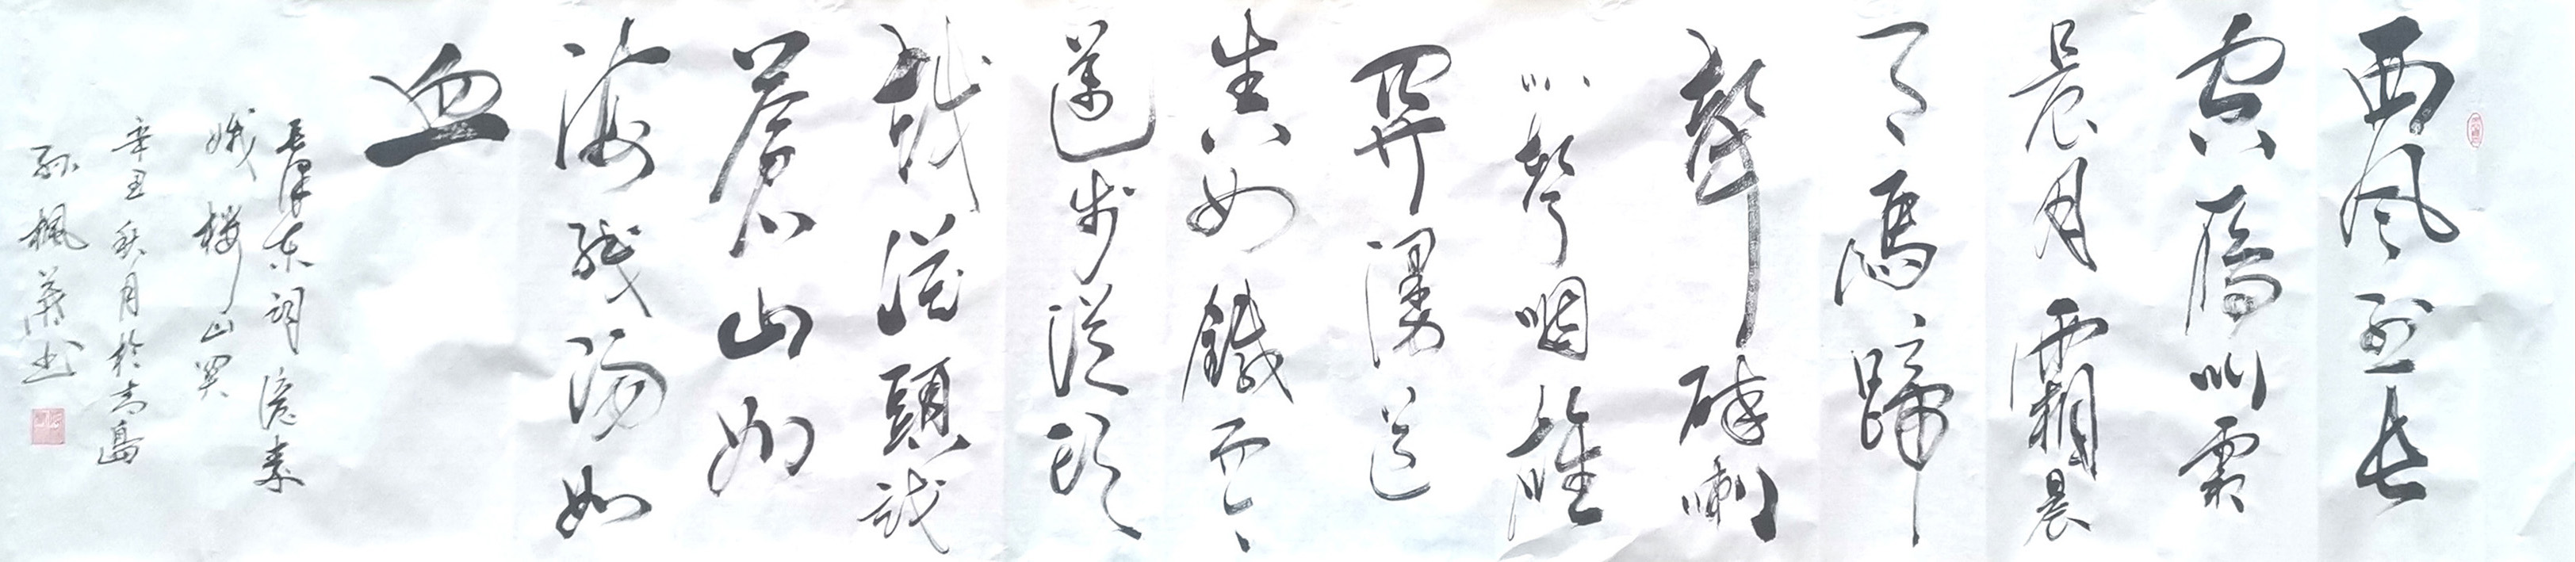 西风烈长
空雁叫霜
晨月霜晨
月馬蹄
聲碎喇
叭聲咽雄
關漫道
真如鐵而今
邁步從頭
越從頭越
蒼山如
海殘陽如
血
毛澤东詞憶秦
娥楼山関
辛丑秋月於青島
孙枫书